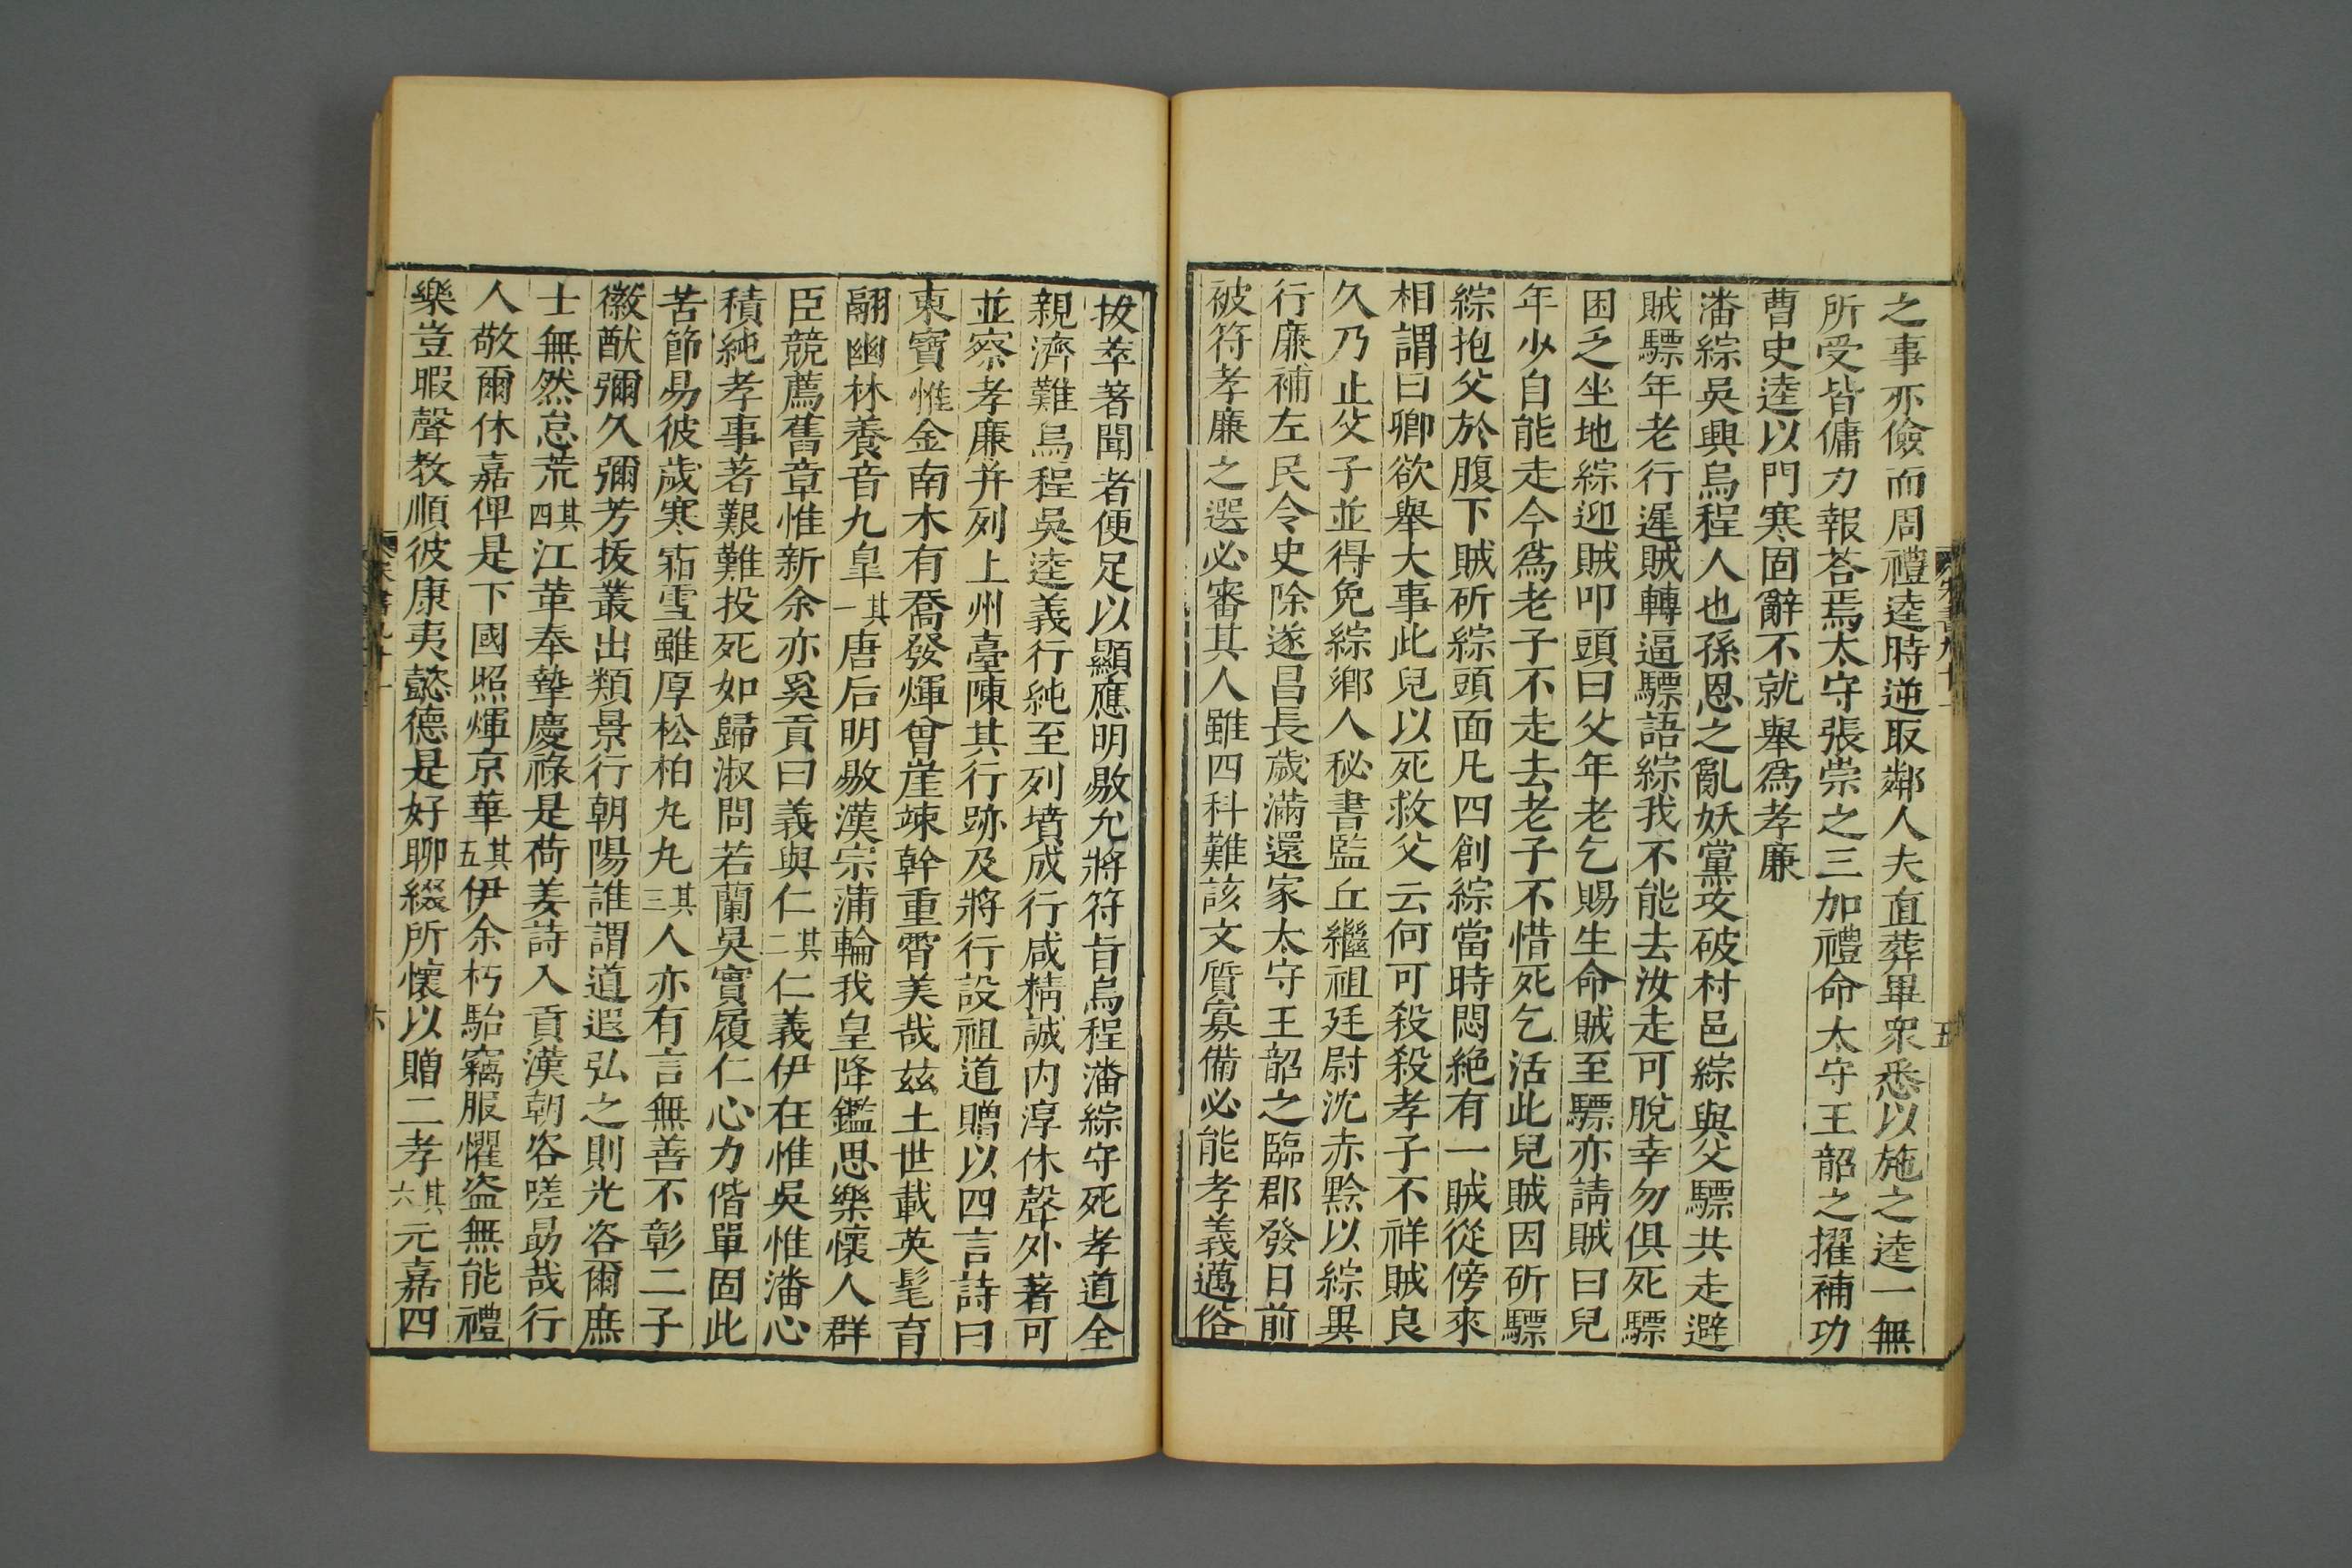 之事亦儉而周禮逵時逆取鄰人夫直葬畢衆悉以施之逵一無
所受皆傭力報荅焉太守張崇之三加禮命太守王韶之擢補功
曹史逵以門寒固辭不就舉爲孝廉
潘綜吳興烏程人也孫恩之亂妖黨攻破村邑綜與父驃共走避
賊驃年老行遲賊轉逼驃語綜我不能去汝走可脫幸勿俱死驃
困乏坐地綜迎賊叩頭曰父年老乞賜生命賊至驃亦請賊曰兒
年少自能走今爲老子不走去老子不惜死乞活此兒賊因斫驃
綜抱父於腹下賊斫綜頭面凡四創綜當時悶絶有一賊從傍來
相謂曰卿欲舉大事此兒以死救父云何可殺殺孝子不祥賊良
久乃止父子並得免綜鄉人秘書監丘繼祖廷尉沈赤黔以綜異
行廉補左民令史除遂昌長歲滿還家太守王韶之臨郡發日前
被符孝廉之選必審其人雖四科難該文質寡備必能孝義邁俗
拔萃著聞者便足以顯應明敭允將符旨烏程潘綜守死孝道全
親濟難烏程吳逵義行純至列墳成行咸精誠内淳休聲外著可
並察孝廉并列上州臺陳其行跡及將行設祖道贈以四言詩曰
東寶惟金南木有喬發煇曾崖竦幹重霄美哉兹土世載英髦育
翮幽林養音九皐其一唐后明敭漢宗蒲輪我皇降鑑思樂懷人群
臣競薦舊章惟新余亦奚貢曰義與仁其二仁義伊在惟吳惟潘心
積純孝事著艱難投死如歸淑問若蘭吳實履仁心力偕單固此
苦節易彼歲寒霜雪雖厚松柏丸丸其三人亦有言無善不彰二子
徽猷彌久彌芳拔叢出類景行朝陽誰謂道遐弘之則光咨爾庶
士無然怠荒其四江革奉摯慶祿是荷姜詩入貢漢朝咨嗟勗哉行
人敬爾休嘉俾是下國照煇京華其五伊余朽駘竊服懼盗無能禮
樂豈暇聲教順彼康夷懿德是好聊綴所懷以贈二孝其六元嘉四
五
六